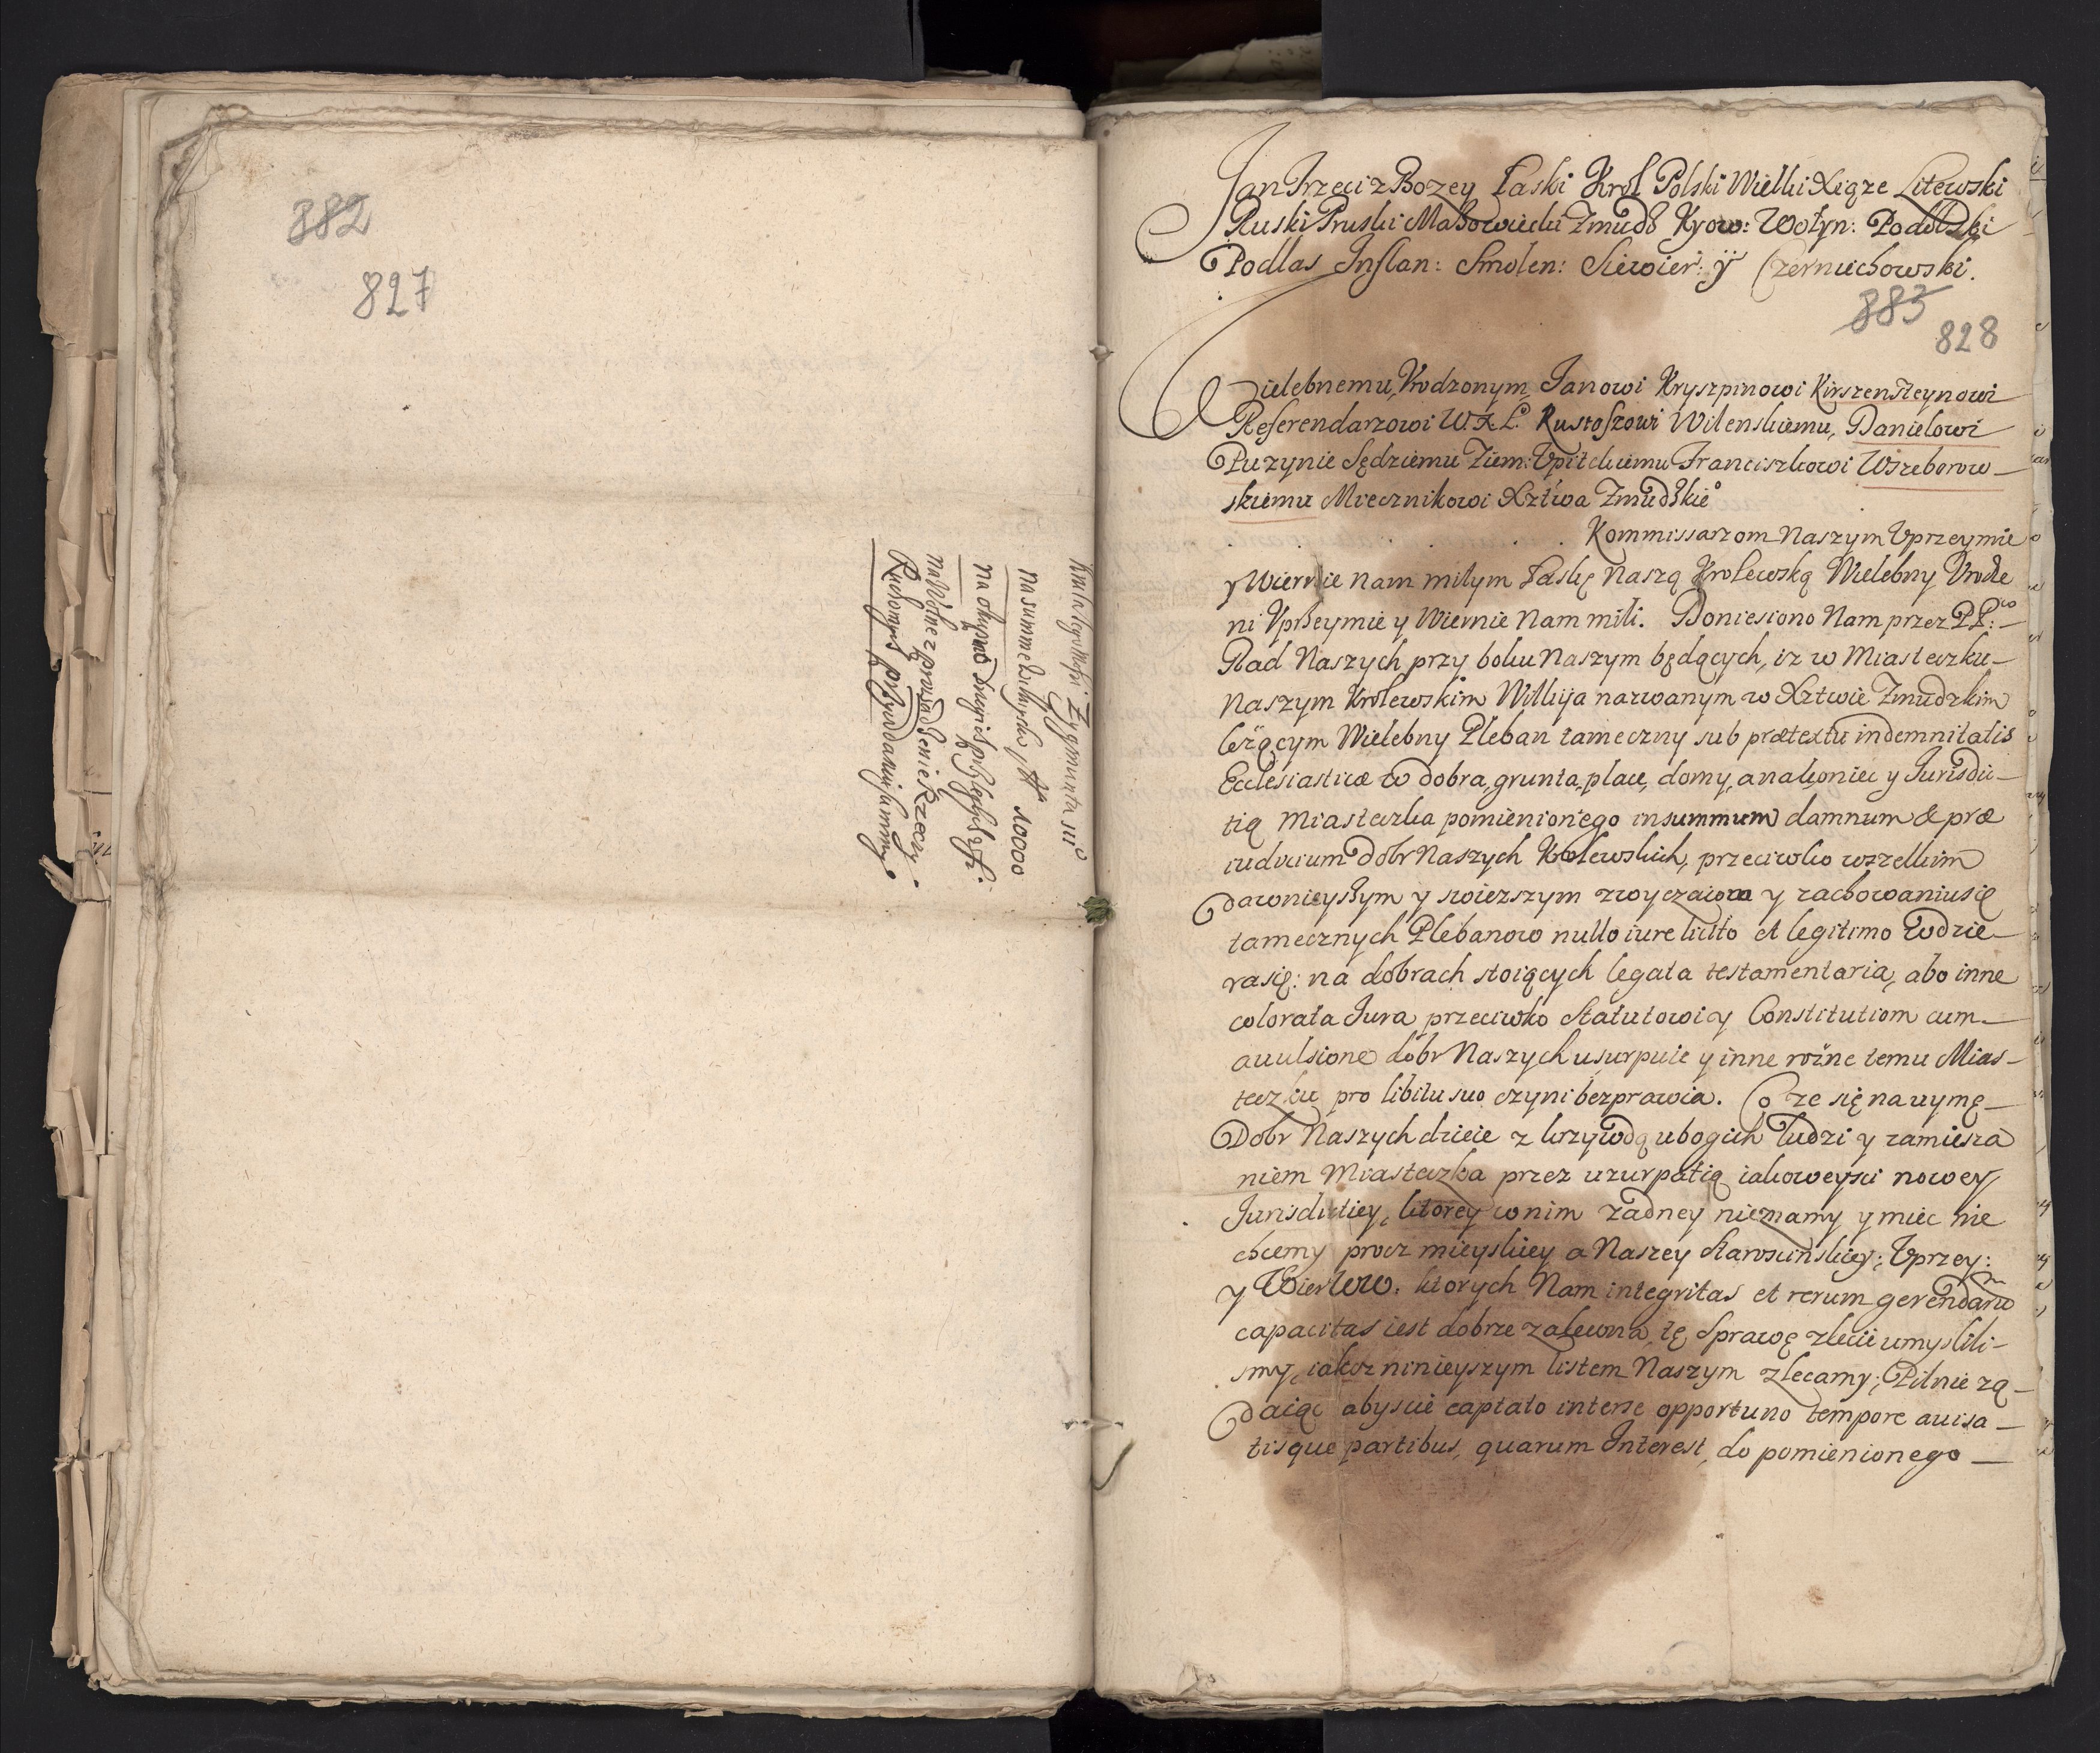 882
827
Zygmunta III°
na summę 10000
Jan Trzeci z Bozey Łaski Krol Polski Wielki Xiąze Litewski
Ruski Pruski Mazowiecki Zmudz Kyow: Wołyn: Podolski
Podlas Inflan: Smolen: Siewier: ÿ Czerniechowski.
883
828
Wielebnemu, Vrodzonym, Janowi Kryszpinowi Kirszensteynowi
Referendarzowi W.X.L. Kustoszowi Wilenskiemu, Danielowi
Puzynie Sędziemu Ziem: Vpitskiemu Franciszkowi Wszeborow_
skiemu Miecznikowi Xztwa Zmudzkie°
Kommissarzom Naszym Vprzeymie
y Wiernie nam miłym Łaskę Naszą Krolewską Wielebny Vrodze
ni Vprzeymie y Wiernie Nam mili. Doniesiono Nam przez PP:
Rad Naszych przy boku Naszym będących, iz w Miasteczku_
Naszym Krolewskim Willuja nazwanym w Xztwie Zmudzkim
leżącym Wielebny Pleban tameczny sub prætextu indemnitatis
Ecclesiasticæ w dobra, grunta, place, domy, a nakoniec y Jurisdic_
tią Miasteczka pomienionego in summum damnum & præ
iudicium Dobr Naszych Krolewskich, przeciwko wszelkim
dawnieyszym y swiezszym zwyczaiom y zachowaniu się
tamecznych Plebanow nullo iure licito et legitimo wdzie_
ra się: na dobrach stoiących legata testamentaria, abo inne
colorata Jura przeciwko Statutowi y Constitutiom cum_
auulsione dobr Naszych usurpuie y inne rożne temu Mias_
teczku pro libitu suo czyni bezprawia. Co ze się na uymę_
Dobr Naszych dzieie z krzywdą ubogich ludzi y zamiesza
niem Miasteczka przez uzurpatią iakoweysci nowey
Jurisdictiey, ktorey w nim zadney nieznamy y miec nie
chcemy procz mieyskiey a Naszey Staroscinskiey; Vprzey:
y Wier WW: ktorych Nam integritas et rerum gerendarum
capacitas iest dobrze zalecona, tę Sprawę zlecic umyslili_
smy, iakoz ninieyszym listem Naszym zlecamy; Pilnie ząo_
daiąc abyscie captato inter se opportuno tempore auisa_
tisque partibus, quarum Interest, do pomienionego_